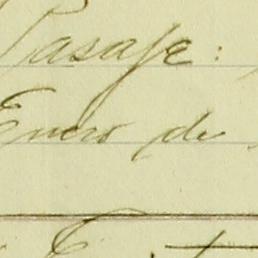 Pasaje:
Enero de